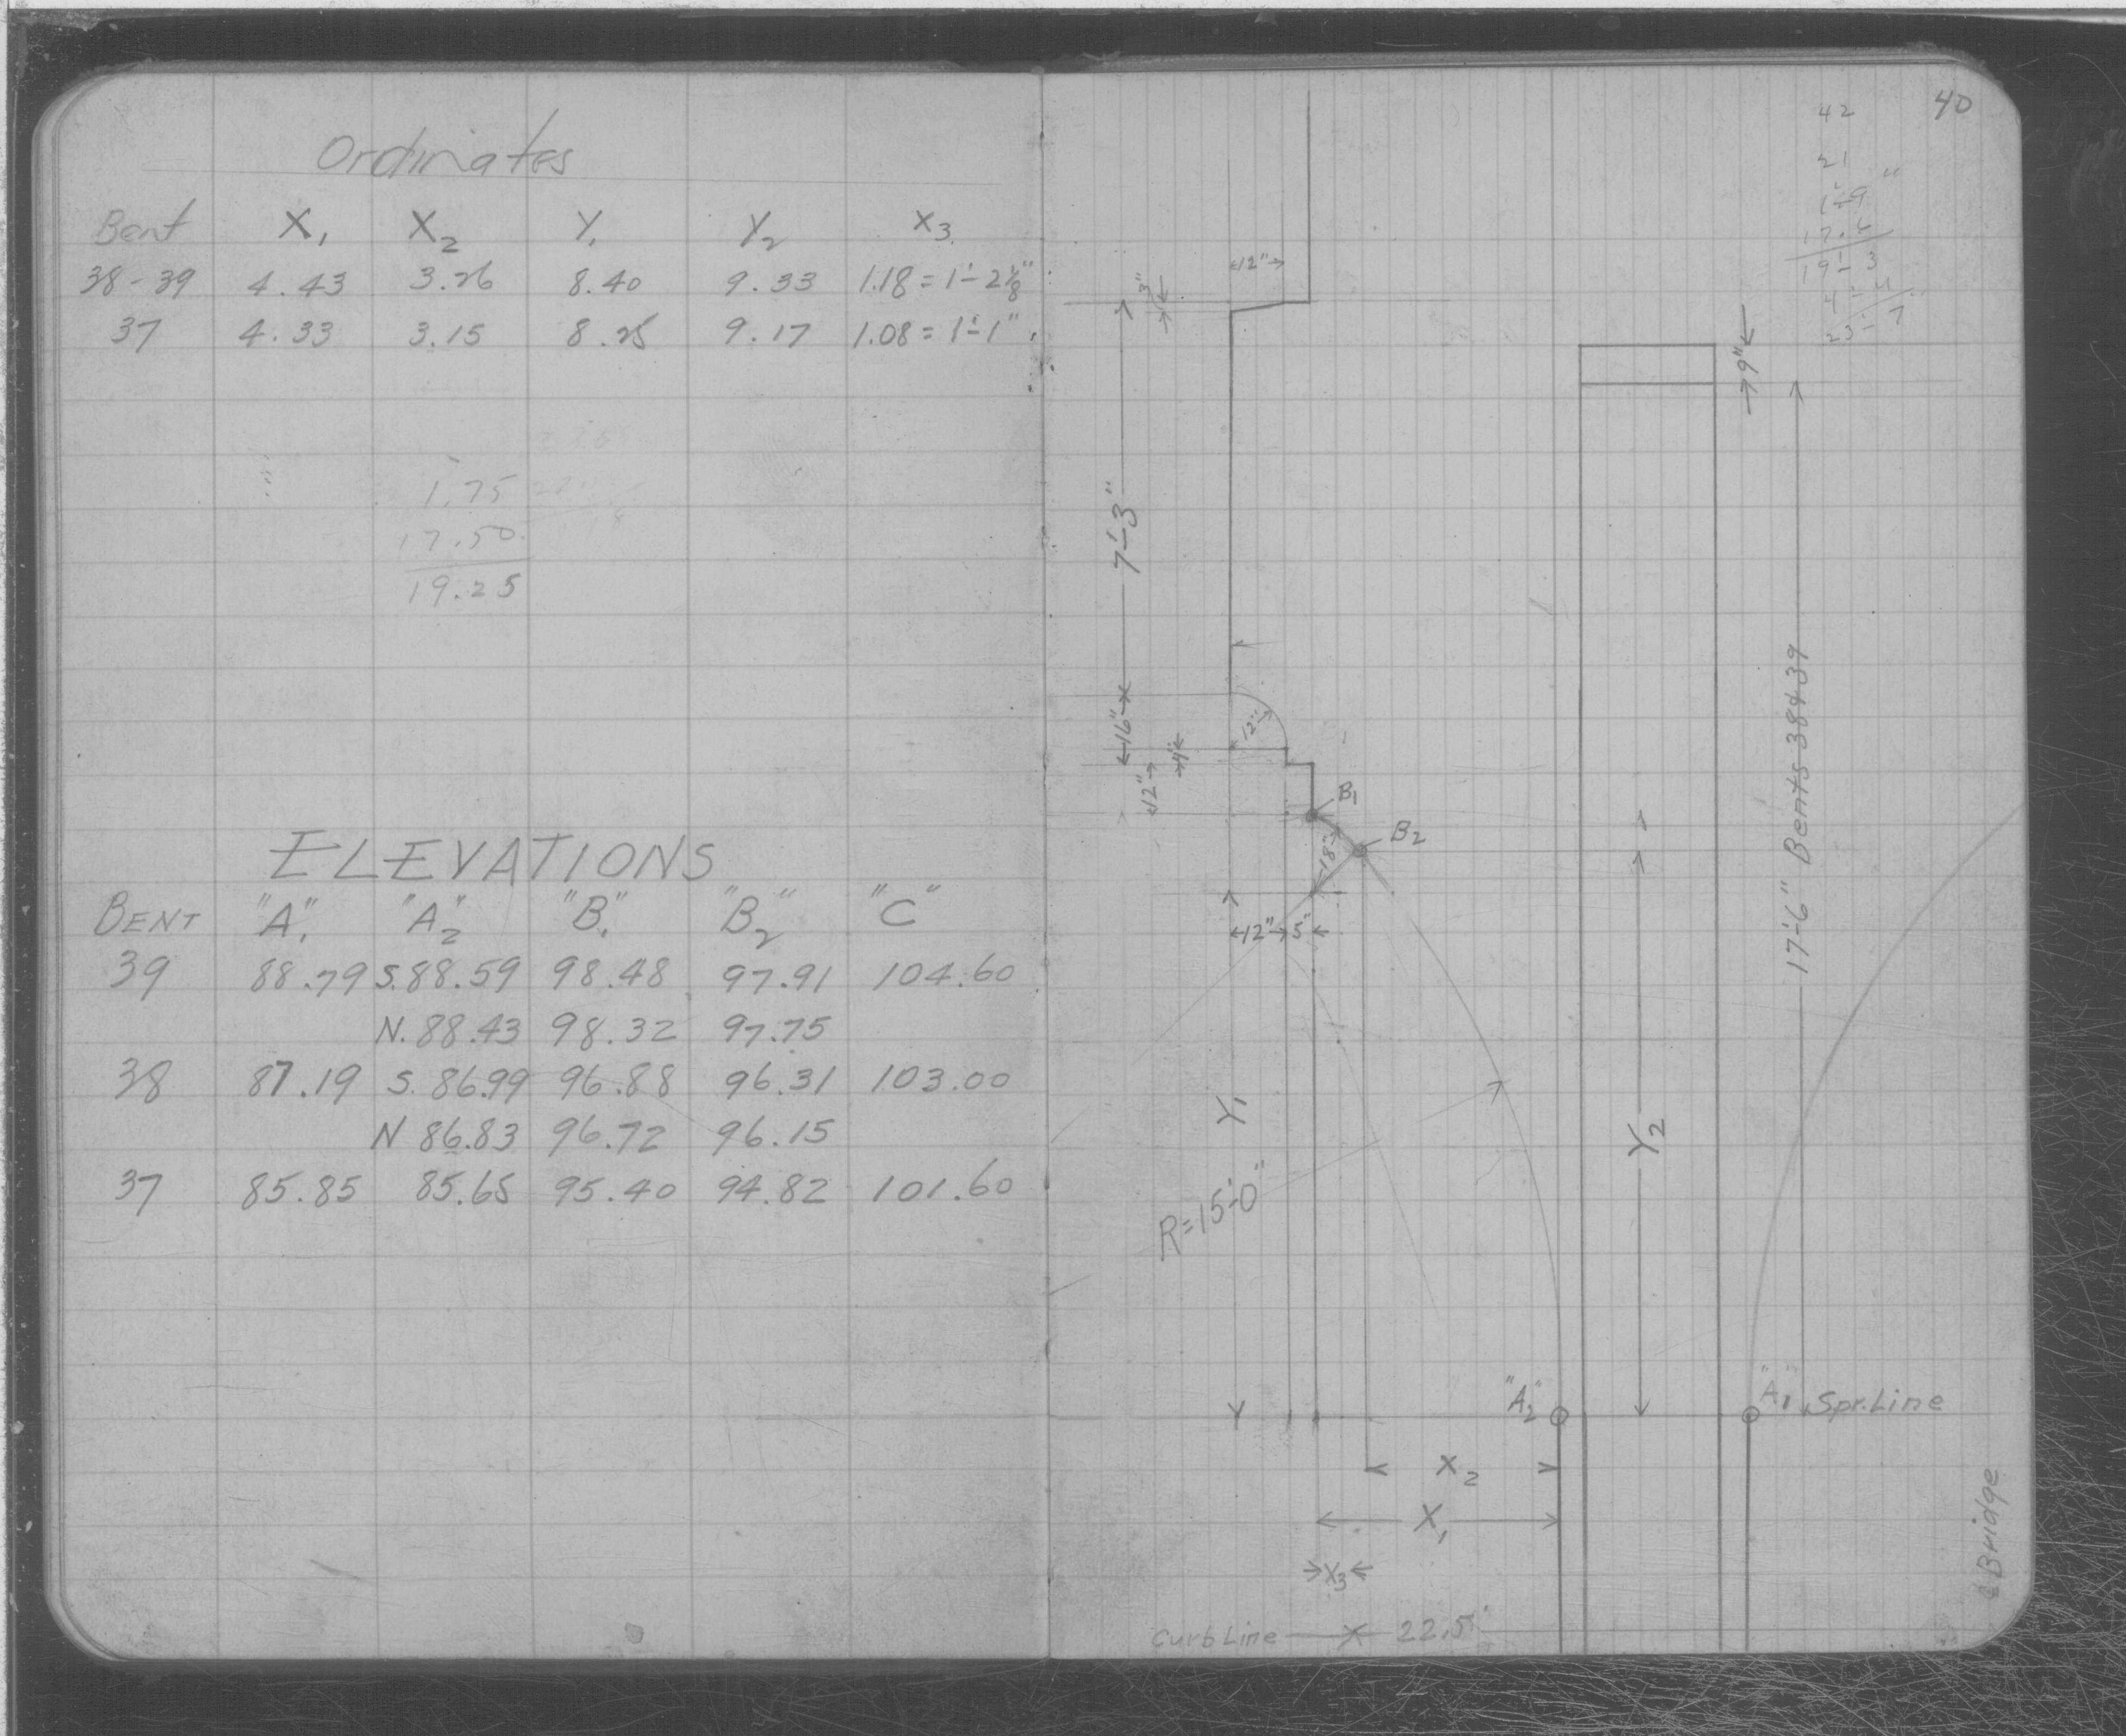 Ordinates
Bent X₁ X₂ Y₁ Y₂ X₃
38-39 4.43 3.26 8.40 9.33 1.18 = 1'-2⅛"
37 4.33 3.15 8.25 9.17 1.08 = 1'-1"
1.75
17.50
19.25
ELEVATIONS
BENT "A₁" "A₂" "B₁" "B₂" "C"
39 88.79 S. 88.59 98.48 97.91 104.60
N. 88.43 98.32 97.75
38 87.19 S. 86.99 96.88 96.31 103.00
N 86.83 96.72 96.15
37 85.85 85.65 95.40 94.82 101.60
40
42
21
1'-9"
17.6
19'-3
4'-4
23'-7
12"
3"
9"
7'-3"
17'-6" Bents 38 & 39
16"
12"
4"
12"
B₁
B₂
18"
12" 5"
Y₁
Y₂
R=15'-0"
"A₂"
"A₁" Spr. Line
X₂
X₁
X₃
Curb Line 22.5'
Bridge